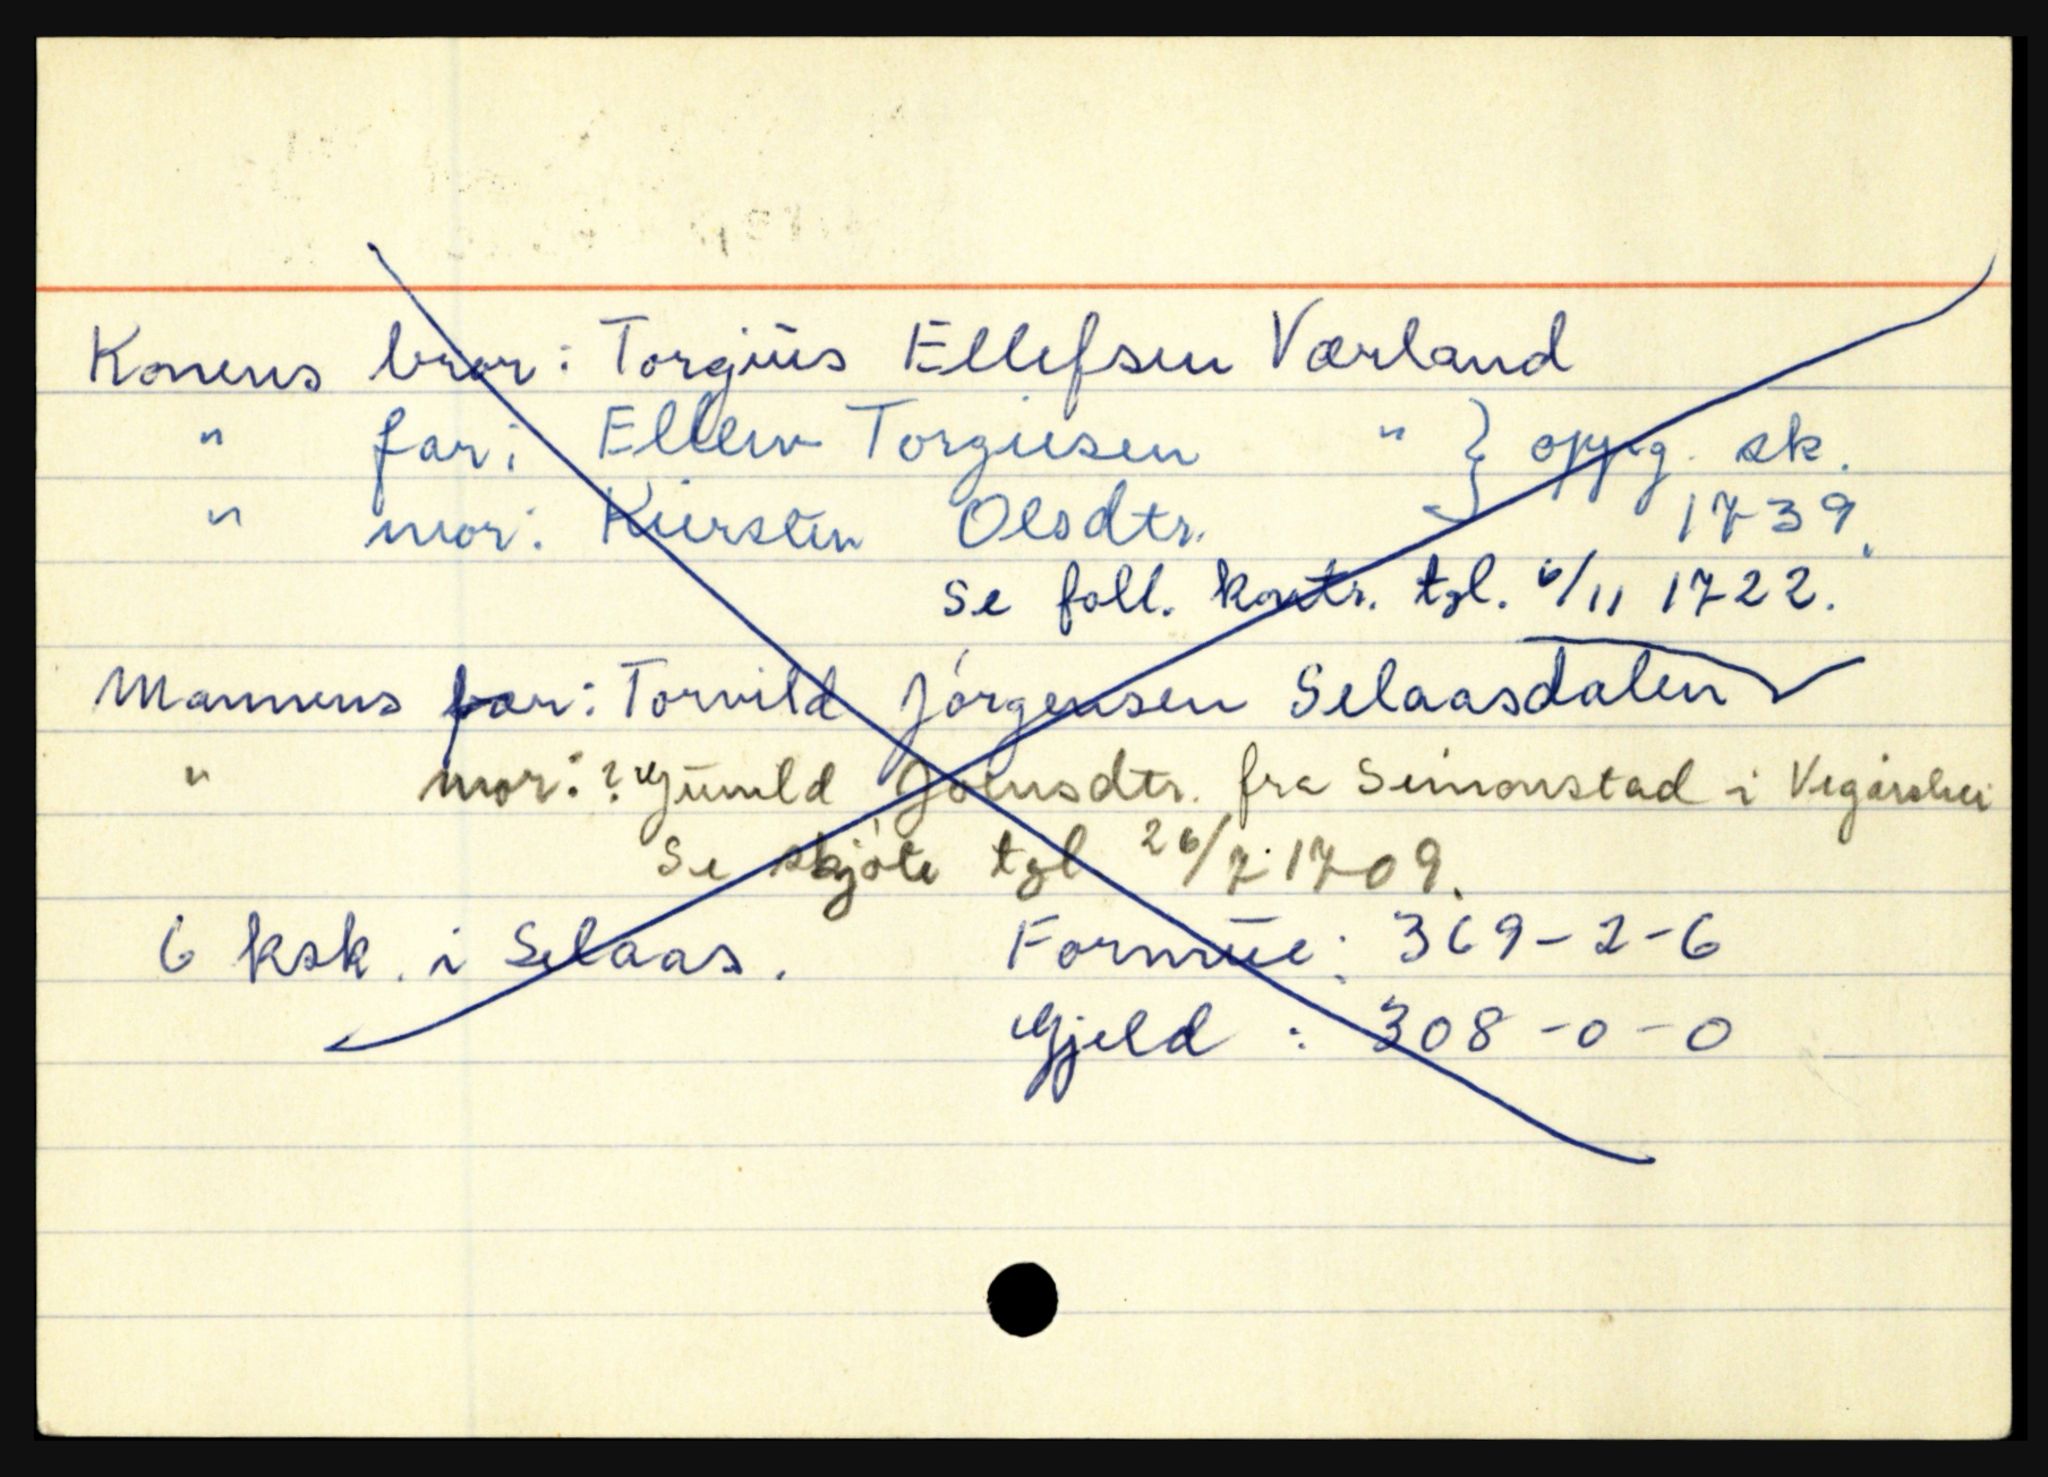 Konens bror: Torgius Ellefsen Værland
" far: Ellew Torgiusen " } oppg. sk.
" mor: Kiersten Olsdtr. 1739.
se foll. kontr. tgl. 6/11 1722.
Mannens far: Torvild Jørgensen Selaasdalen
" mor: ? Gunild Joensdtr. fra Simonstad i Vegårshei
Se skjøte tgl 26/7 1709.
6 ksk. i Selaas. Formue: 369-2-6
Gjeld : 308-0-0